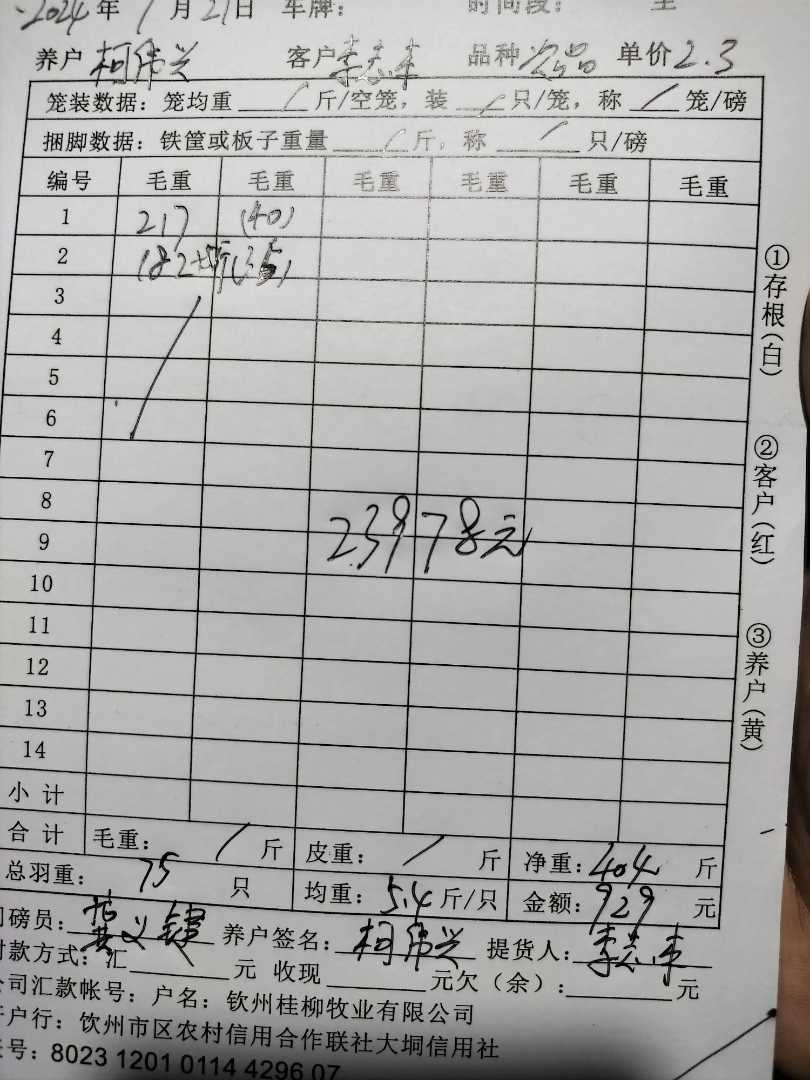 2024年1月21日 车牌： 时间段： 至
养户 柯伟兴 客户 李志来 品种 次品 单价2.3
笼装数据：笼均重 / 斤/空笼，装 / 只/笼，称 / 笼/磅
捆脚数据：铁筐或板子重量 / 斤，称 / 只/磅
编号 毛重 毛重 毛重 毛重 毛重 毛重
1 217 (40)
2 182+5斤(35)
3
4
5
6
7
8
9 23978元
10
11
12
13
14
小 计
合 计 毛重： / 斤 皮重： / 斤 净重：404 斤
总羽重： 75 只 均重：5.4斤/只 金额：929 元
磅员： 养户签名：柯伟兴 提货人：李志来
付款方式：汇 元 收现 元欠（余）： 元
公司汇款帐号：户名：钦州桂柳牧业有限公司
开户行：饮州市区农村信用合作联社大垌信用社
账号：8023 1201 0114 4296 07
①存根（白）
②客户（红）
③养户（黄）